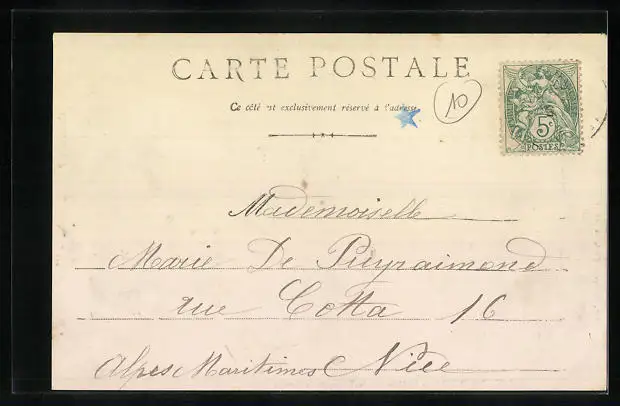 CARTE POSTALE
Ce côté est exclusivement réservé à l'adresse
10
5c
POSTES
Mademoiselle
Marie De Puyraimond
rue Cotta 16
Alpes Maritimes Nice